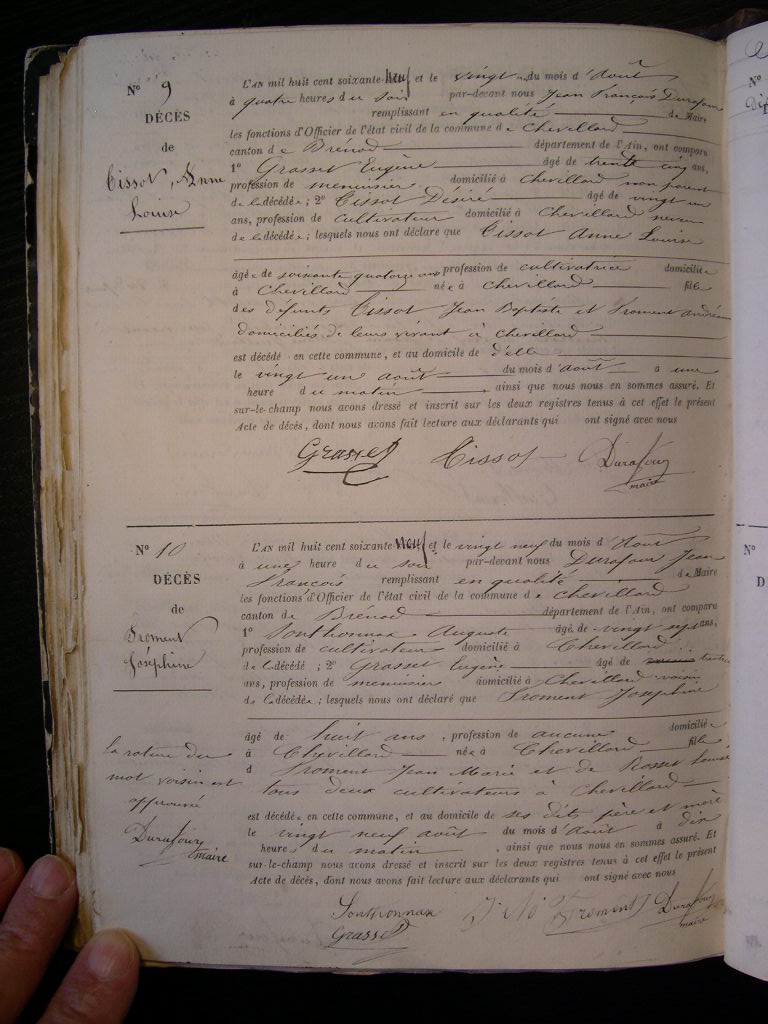 N° 9
DÉCÈS
de
Cissot, Anne
Louise
L'AN mil huit cent soixante-neuf et le vingt un du mois d'Août
à quatre heures du soir par-devant nous Jean François Durafour
remplissant en qualité de Maire
les fonctions d'Officier de l'état civil de la commune de Chevillard
canton de Brénod département de l'Ain, ont comparu
1° Grasset Eugène âgé de trente cinq ans,
profession de menuisier domicilié à Chevillard non parent
de la décédée; 2° Cissot Désiré âgé de vingt un
ans, profession de cultivateur domicilié à Chevillard neveu
de la décédée; lesquels nous ont déclaré que Cissot Anne Louise
âgée de soixante quatorze ans profession de cultivatrice domiciliée
à Chevillard née à Chevillard fille
des défunts Cissot Jean Baptiste et Froment
domiciliés de leurs vivant à Chevillard
est décédé en cette commune, et au domicile de d'elle
le vingt un août du mois d'août à une
heure du matin, ainsi que nous nous en sommes assuré. Et
sur-le-champ nous avons dressé et inscrit sur les deux registres tenus à cet effet le présent
Acte de décès, dont nous avons fait lecture aux déclarants qui ont signé avec nous
Grasset Cissot Durafour
maire
N° 10
DÉCÈS
de
Froment
Joséphine
L'AN mil huit cent soixante-neuf et le vingt neuf du mois d'Aout
à une heure du soir par-devant nous Durafour Jean
François remplissant en qualité de Maire
les fonctions d'Officier de l'état civil de la commune de Chevillard
canton de Brénod département de l'Ain, ont comparu
1° Sonthonnax Auguste âgé de vingt sept ans,
profession de cultivateur domicilié à Chevillard
de la décédé; 2° Grasset Eugène âgé de trente
ans, profession de menuisier domicilié à Chevillard voisin
de la décédée; lesquels nous ont déclaré que Froment Joséphine
âgé de huit ans, profession de aucune domiciliée
à Chevillard née à Chevillard fille
d Froment Jean Marie et de Rosset Louise
tous deux cultivateurs à Chevillard
est décédée, en cette commune, et au domicile de ses dits père et mère
le vingt neuf août du mois d'Aout à dix
heures du matin, ainsi que nous nous en sommes assuré. Et
sur-le-champ nous avons dressé et inscrit sur les deux registres tenus à cet effet le présent
Acte de décès, dont nous avons fait lecture aux déclarants qui ont signé avec nous
la rature du
mot voisin est
approuvé
Durafour
maire
Sonthonnax Froment Durafour
Grasset maire